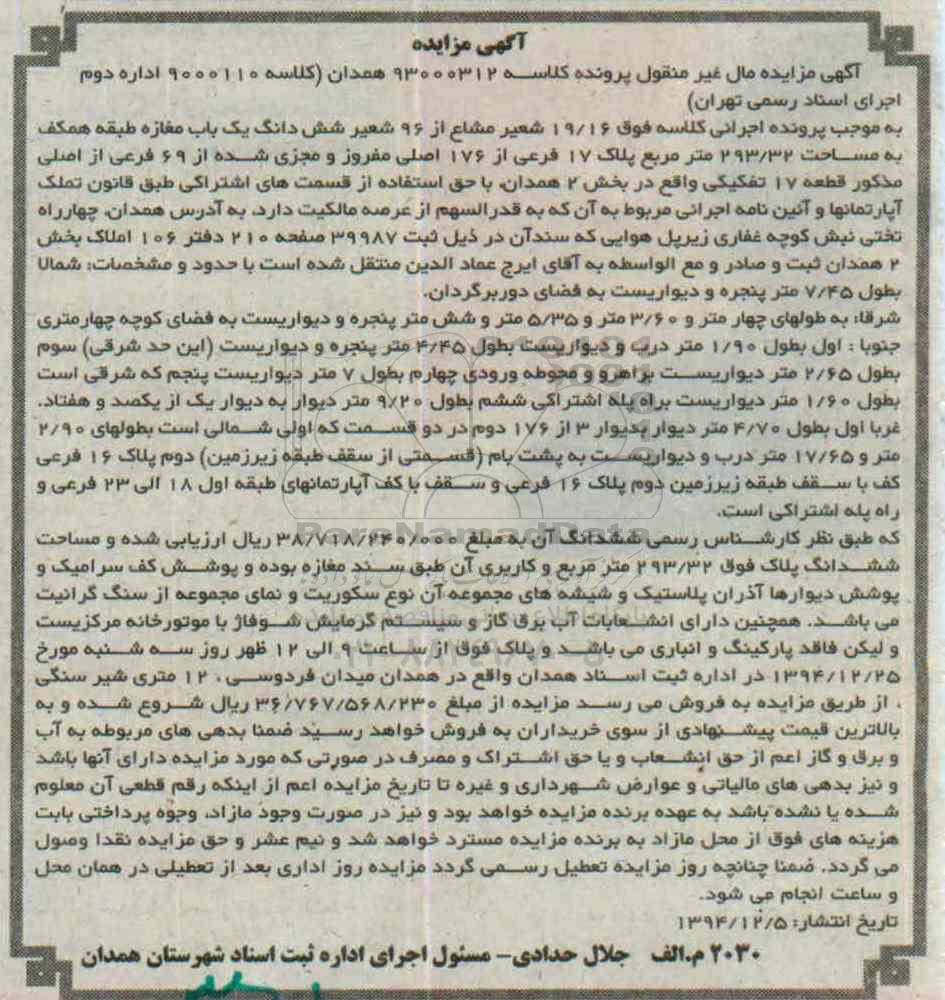 آگهی مزایده
آگهی مزایده مال غیر منقول پرونده کلاسه ۹۳۰۰۰۳۱۲ همدان (کلاسه ۹۰۰۰۱۱۰ اداره دوم
اجرای اسناد رسمی تهران)
به موجب پرونده اجرائی کلاسه فوق ۱۹/۱۶ شعیر مشاع از ۹۶ شعیر شش دانگ یک باب مغازه طبقه همکف
به مساحت ۲۹۳/۳۲ متر مربع پلاک ۱۷ فرعی از ۱۷۶ اصلی مفروز و مجزی شده از ۶۹ فرعی از اصلی
مذکور قطعه ۱۷ تفکیکی واقع در بخش ۲ همدان، با حق استفاده از قسمت های اشتراکی طبق قانون تملک
آپارتمانها و آئین نامه اجرائی مربوط به آن که به قدرالسهم از عرصه مالکیت دارد، به آدرس همدان، چهارراه
تختی نبش کوچه غفاری زیرپل هوایی که سندآن در ذیل ثبت ۳۹۹۸۷ صفحه ۲۱۰ دفتر ۱۰۶ املاک بخش
۲ همدان ثبت و صادر و مع الواسطه به آقای ایرج عماد الدین منتقل شده است با حدود و مشخصات: شمالا
بطول ۷/۴۵ متر پنجره و دیواریست به فضای دوربرگردان.
شرقا: به طولهای چهار متر و ۳/۶۰ متر و ۵/۳۵ متر و شش متر پنجره و دیواریست به فضای کوچه چهارمتری
جنوبا : اول بطول ۱/۹۰ متر درب و دیواریست بطول ۴/۴۵ متر پنجره و دیواریست (این حد شرقی) سوم
بطول ۲/۶۵ متر دیواریست براهرو و محوطه ورودی چهارم بطول ۷ متر دیواریست پنجم که شرقی است
بطول ۱/۶۰ متر دیواریست براه پله اشتراکی ششم بطول ۹/۲۰ متر دیوار به دیوار یک از یکصد و هفتاد.
غربا اول بطول ۴/۷۰ متر دیوار بدیوار ۳ از ۱۷۶ دوم در دو قسمت که اولی شمالی است بطولهای ۲/۹۰
متر و ۱۷/۶۵ متر درب و دیواریست به پشت بام (قسمتی از سقف طبقه زیرزمین) دوم پلاک ۱۶ فرعی
کف با سقف طبقه زیرزمین دوم پلاک ۱۶ فرعی و سقف با کف آپارتمانهای طبقه اول ۱۸ الی ۲۳ فرعی و
راه پله اشتراکی است.
که طبق نظر کارشناس رسمی ششدانگ آن به مبلغ ۳۸/۷۱۸/۲۴۰/۰۰۰ ریال ارزیابی شده و مساحت
ششدانگ پلاک فوق ۲۹۳/۳۲ متر مربع و کاربری آن طبق سند مغازه بوده و پوشش کف سرامیک و
پوشش دیوارها آذران پلاستیک و شیشه های مجموعه آن نوع سکوریت و نمای مجموعه از سنگ گرانیت
می باشد. همچنین دارای انشعابات آب برق گاز و سیستم گرمایش شوفاژ با موتورخانه مرکزیست
و لیکن فاقد پارکینگ و انباری می باشد و پلاک فوق از ساعت ۹ الی ۱۲ ظهر روز سه شنبه مورخ
۱۳۹۴/۱۲/۲۵ در اداره ثبت اسناد همدان واقع در همدان میدان فردوسی ، ۱۲ متری شیر سنگی
، از طریق مزایده به فروش می رسد مزایده از مبلغ ۳۶/۷۶۷/۵۶۸/۲۳۰ ریال شروع شده و به
بالاترین قیمت پیشنهادی از سوی خریداران به فروش خواهد رسید ضمنا بدهی های مربوطه به آب
و برق و گاز اعم از حق انشعاب و یا حق اشتراک و مصرف در صورتی که مورد مزایده دارای آنها باشد
و نیز بدهی های مالیاتی و عوارض شهرداری و غیره تا تاریخ مزایده اعم از اینکه رقم قطعی آن معلوم
شده یا نشده باشد به عهده برنده مزایده خواهد بود و نیز در صورت وجود مازاد، وجوه پرداختی بابت
هزینه های فوق از محل مازاد به برنده مزایده مسترد خواهد شد و نیم عشر و حق مزایده نقدا وصول
می گردد. ضمنا چنانچه روز مزایده تعطیل رسمی گردد مزایده روز اداری بعد از تعطیلی در همان محل
و ساعت انجام می شود.
تاریخ انتشار: ۱۳۹۴/۱۲/۵
۲۰۳۰ م.الف جلال حدادی- مسئول اجرای اداره ثبت اسناد شهرستان همدان
ParsNamadData